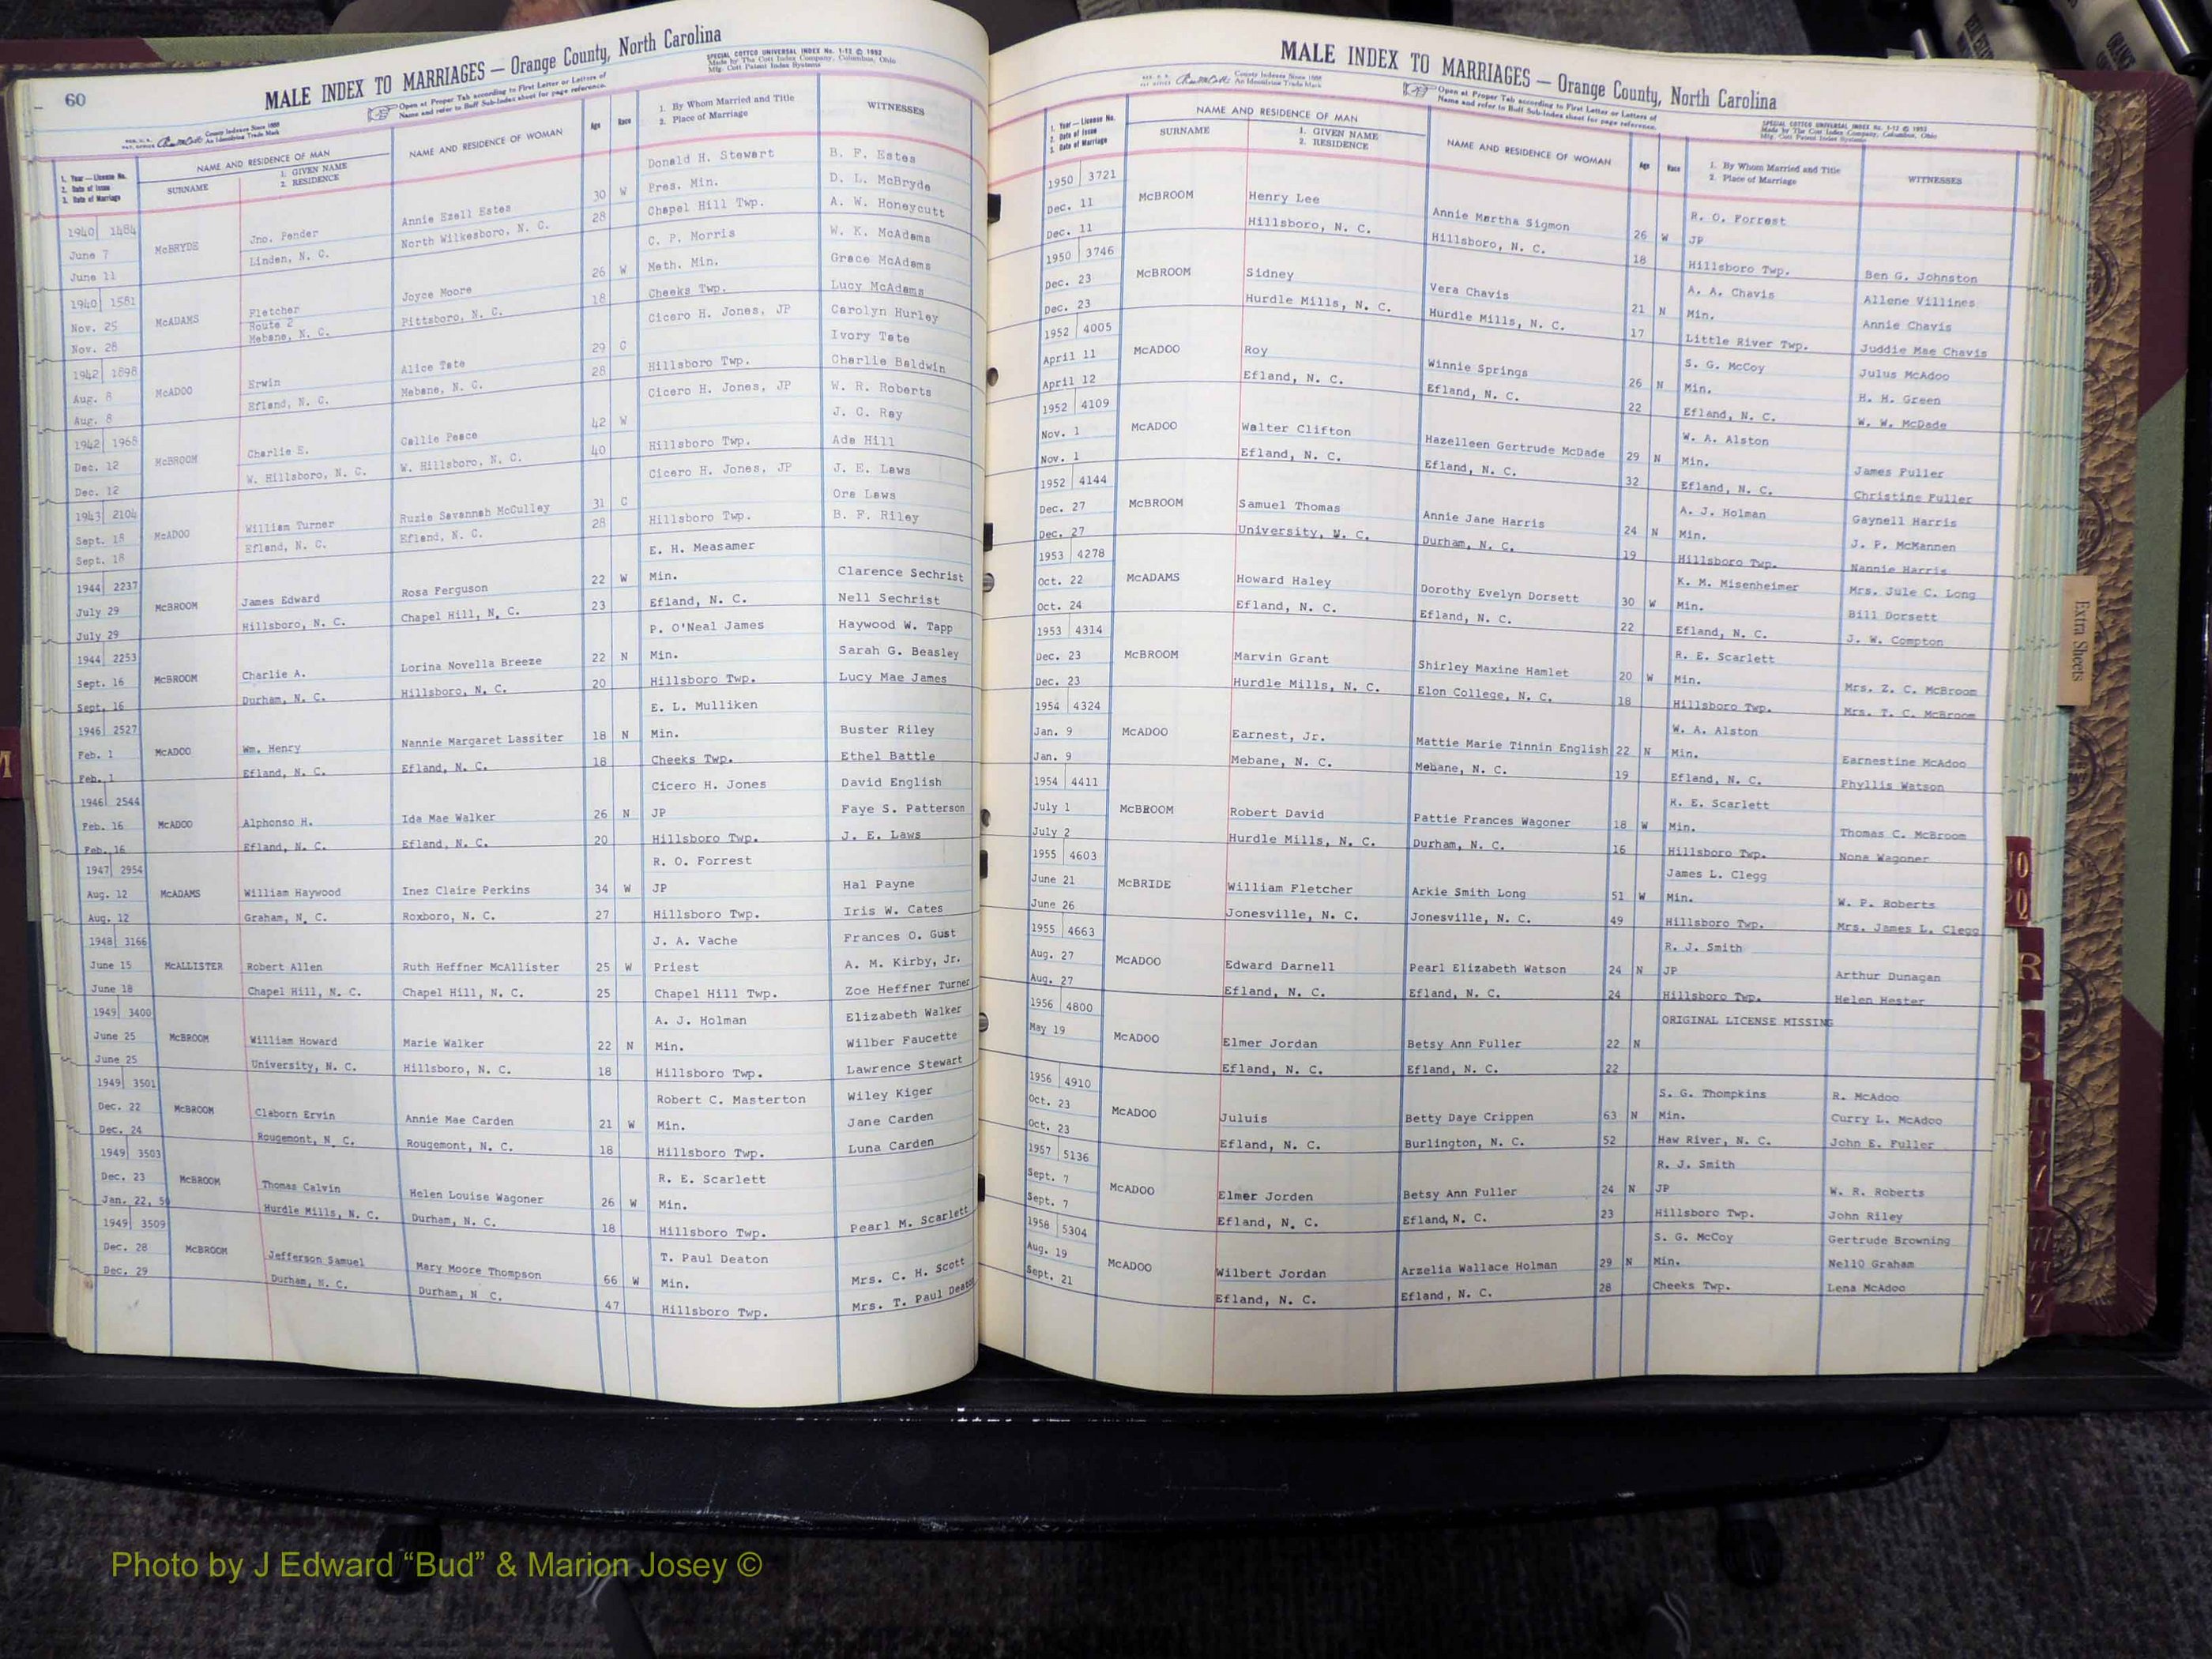 60
MALE INDEX TO MARRIAGES — Orange County, North Carolina
SPECIAL COTTCO UNIVERSAL INDEX No. 1-12 © 1952
Made by The Cott Index Company, Columbus, Ohio
Mfg. Cott Patent Index Systems
Open at Proper Tab according to First Letter or Letters of
Name and refer to Buff Sub-Index sheet for page reference.
County Indexes Since 1888
An Identifying Trade Mark
1. Year — License No.
2. Date of Issue
3. Date of Marriage
NAME AND RESIDENCE OF MAN
SURNAME
1. GIVEN NAME
2. RESIDENCE
NAME AND RESIDENCE OF WOMAN
Age
Race
1. By Whom Married and Title
2. Place of Marriage
WITNESSES
1940 1484 McBRYDE Jno. Pender Annie Ezell Estes 30 W Donald H. Stewart B. F. Estes
June 7 Linden, N. C. North Wilkesboro, N. C. 28 Pres. Min. D. L. McBryde
June 11 Chapel Hill Twp. A. W. Honeycutt
1940 1581 McADAMS Fletcher Joyce Moore 26 W C. P. Morris W. K. McAdams
Nov. 25 Route 2 Pittsboro, N. C. 18 Meth. Min. Grace McAdams
Nov. 28 Mebane, N. C. Cheeks Twp. Lucy McAdams
1942 1898 McADOO Erwin Alice Tate 29 C Cicero H. Jones, JP Carolyn Hurley
Aug. 8 Efland, N. C. Mebane, N. C. 28 Ivory Tate
Aug. 8 Hillsboro Twp. Charlie Baldwin
1942 1968 McBROOM Charlie E. Callie Peace 42 W Cicero H. Jones, JP W. R. Roberts
Dec. 12 W. Hillsboro, N. C. W. Hillsboro, N. C. 40 J. C. Ray
Dec. 12 Hillsboro Twp. Ada Hill
1943 2104 McADOO William Turner Ruzie Savannah McCulley 31 C Cicero H. Jones, JP J. E. Laws
Sept. 18 Efland, N. C. Efland, N. C. 28 Ora Laws
Sept. 18 Hillsboro Twp. B. F. Riley
1944 2237 McBROOM James Edward Rosa Ferguson 22 W E. H. Measamer
July 29 Hillsboro, N. C. Chapel Hill, N. C. 23 Min. Clarence Sechrist
July 29 Efland, N. C. Nell Sechrist
1944 2253 McBROOM Charlie A. Lorina Novella Breeze 22 N P. O'Neal James Haywood W. Tapp
Sept. 16 Durham, N. C. Hillsboro, N. C. 20 Min. Sarah G. Beasley
Sept. 16 Hillsboro Twp. Lucy Mae James
1946 2527 McADOO Wm. Henry Nannie Margaret Lassiter 18 N E. L. Mulliken
Feb. 1 Efland, N. C. Efland, N. C. 18 Min. Buster Riley
Feb. 1 Cheeks Twp. Ethel Battle
1946 2544 McADOO Alphonso H. Ida Mae Walker 26 N Cicero H. Jones David English
Feb. 16 Efland, N. C. Efland, N. C. 20 JP Faye S. Patterson
Feb. 16 Hillsboro Twp. J. E. Laws
1947 2954 McADAMS William Haywood Inez Claire Perkins 34 W R. O. Forrest
Aug. 12 Graham, N. C. Roxboro, N. C. 27 JP Hal Payne
Aug. 12 Hillsboro Twp. Iris W. Cates
1948 3166 McALLISTER Robert Allen Ruth Heffner McAllister 25 W J. A. Vache Frances O. Gust
June 15 Chapel Hill, N. C. Chapel Hill, N. C. 25 Priest A. M. Kirby, Jr.
June 18 Chapel Hill Twp. Zoe Heffner Turner
1949 3400 McBROOM William Howard Marie Walker 22 N A. J. Holman Elizabeth Walker
June 25 University, N. C. Hillsboro, N. C. 18 Min. Wilber Faucette
June 25 Hillsboro Twp. Lawrence Stewart
1949 3501 McBROOM Claborn Ervin Annie Mae Carden 21 W Robert C. Masterton Wiley Kiger
Dec. 22 Rougemont, N. C. Rougemont, N. C. 18 Min. Jane Carden
Dec. 24 Hillsboro Twp. Luna Carden
1949 3503 McBROOM Thomas Calvin Helen Louise Wagoner 26 W R. E. Scarlett
Dec. 23 Hurdle Mills, N. C. Durham, N. C. 18 Min.
Jan. 22, 50 Hillsboro Twp. Pearl M. Scarlett
1949 3509 McBROOM Jefferson Samuel Mary Moore Thompson 66 W T. Paul Deaton
Dec. 28 Durham, N. C. Durham, N C. 47 Min. Mrs. C. H. Scott
Dec. 29 Hillsboro Twp. Mrs. T. Paul Deaton
MALE INDEX TO MARRIAGES — Orange County, North Carolina
County Indexes Since 1888
An Identifying Trade Mark
Open at Proper Tab according to First Letter or Letters of
Name and refer to Buff Sub-Index sheet for page reference.
SPECIAL COTTCO UNIVERSAL INDEX No. 1-12 © 1952
Made by The Cott Index Company, Columbus, Ohio
Mfg. Cott Patent Index Systems
1. Year — License No.
2. Date of Issue
3. Date of Marriage
NAME AND RESIDENCE OF MAN
SURNAME
1. GIVEN NAME
2. RESIDENCE
NAME AND RESIDENCE OF WOMAN
Age
Race
1. By Whom Married and Title
2. Place of Marriage
WITNESSES
1950 3721 McBROOM Henry Lee Annie Martha Sigmon 26 W R. O. Forrest
Dec. 11 Hillsboro, N. C. Hillsboro, N. C. 18 JP
Dec. 11 Hillsboro Twp. Ben G. Johnston
1950 3746 McBROOM Sidney Vera Chavis 21 N A. A. Chavis Allene Villines
Dec. 23 Hurdle Mills, N. C. Hurdle Mills, N. C. 17 Min. Annie Chavis
Dec. 23 Little River Twp. Juddie Mae Chavis
1952 4005 McADOO Roy Winnie Springs 26 N S. G. McCoy Julus McAdoo
April 11 Efland, N. C. Efland, N. C. 22 Min. H. H. Green
April 12 Efland, N. C. W. W. McDade
1952 4109 McADOO Walter Clifton Hazelleen Gertrude McDade 29 N W. A. Alston
Nov. 1 Efland, N. C. Efland, N. C. 32 Min. James Fuller
Nov. 1 Efland, N. C. Christine Fuller
1952 4144 McBROOM Samuel Thomas Annie Jane Harris 24 N A. J. Holman Gaynell Harris
Dec. 27 University, N. C. Durham, N. C. 19 Min. J. P. McMannen
Dec. 27 Hillsboro Twp. Nannie Harris
1953 4278 McADAMS Howard Haley Dorothy Evelyn Dorsett 30 W K. M. Misenheimer Mrs. Jule C. Long
Oct. 22 Efland, N. C. Efland, N. C. 22 Min. Bill Dorsett
Oct. 24 Efland, N. C. J. W. Compton
1953 4314 McBROOM Marvin Grant Shirley Maxine Hamlet 20 W R. E. Scarlett
Dec. 23 Hurdle Mills, N. C. Elon College, N. C. 18 Min. Mrs. Z. C. McBroom
Dec. 23 Hillsboro Twp. Mrs. T. C. McBroom
1954 4324 McADOO Earnest, Jr. Mattie Marie Tinnin English 22 N W. A. Alston
Jan. 9 Mebane, N. C. Mebane, N. C. 19 Min. Earnestine McAdoo
Jan. 9 Efland, N. C. Phyllis Watson
1954 4411 McBROOM Robert David Pattie Frances Wagoner 18 W R. E. Scarlett
July 1 Hurdle Mills, N. C. Durham, N. C. 16 Min. Thomas C. McBroom
July 2 Hillsboro Twp. Nona Wagoner
1955 4603 McBRIDE William Fletcher Arkie Smith Long 51 W James L. Clegg
June 21 Jonesville, N. C. Jonesville, N. C. 49 Min. W. P. Roberts
June 26 Hillsboro Twp. Mrs. James L. Clegg
1955 4663 McADOO Edward Darnell Pearl Elizabeth Watson 24 N R. J. Smith
Aug. 27 Efland, N. C. Efland, N. C. 24 JP Arthur Dunagan
Aug. 27 Hillsboro Twp. Helen Hester
1956 4800 McADOO Elmer Jordan Betsy Ann Fuller 22 N ORIGINAL LICENSE MISSING
May 19 Efland, N. C. Efland, N. C. 22
1956 4910 McADOO Juluis Betty Daye Crippen 63 N S. G. Thompkins R. McAdoo
Oct. 23 Efland, N. C. Burlington, N. C. 52 Min. Curry L. McAdoo
Oct. 23 Haw River, N. C. John E. Fuller
1957 5136 McADOO Elmer Jorden Betsy Ann Fuller 24 N R. J. Smith
Sept. 7 Efland, N. C. Efland, N. C. 23 JP W. R. Roberts
Sept. 7 Hillsboro Twp. John Riley
1958 5304 McADOO Wilbert Jordan Arzelia Wallace Holman 29 N S. G. McCoy Gertrude Browning
Aug. 19 Efland, N. C. Efland, N. C. 28 Min. Nello Graham
Sept. 21 Cheeks Twp. Lena McAdoo
Extra Sheets
R
S
Photo by J Edward “Bud” & Marion Josey ©